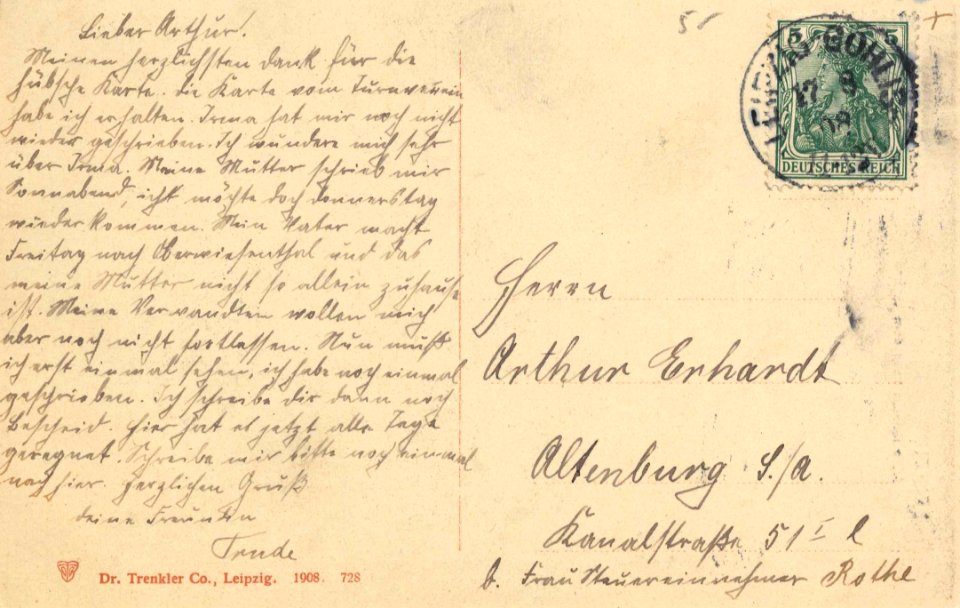 Lieber Arthur!
Meinen herzlichsten Dank für die
hübsche Karte. Die Karte vom Turnverein
habe ich erhalten. Irma hat mir noch nicht
wieder geschrieben. Ich wundere mich sehr
über Irma. Meine Mutter schrieb mir
Sonnabend, ich möchte doch Donnerstag
wieder kommen. Mein Vater macht
Freitag nach Oberwiesenthal und das
meine Mutter nicht so allein zuhause
ist. Meine Verwandten wollen mich
aber noch nicht fortlassen. Nun muß
ich erst einmal sehen, ich habe noch einmal
geschrieben. Ich schreibe dir dann noch
Bescheid. Hier hat es jetzt alle Tage
geregnet. Schreibe mir bitte noch einmal
nach hier. Herzlichen Gruß
deine Freundin
Trude
Dr. Trenkler Co., Leipzig. 1908. 728
51
5 5
LEIPZIG-GOHLIS
17 8
09
DEUTSCHES REICH
Herrn
Arthur Erhardt
Altenburg S./A.
Kanalstraße 51 I l
b. Frau Steuereinnehmer Rothe